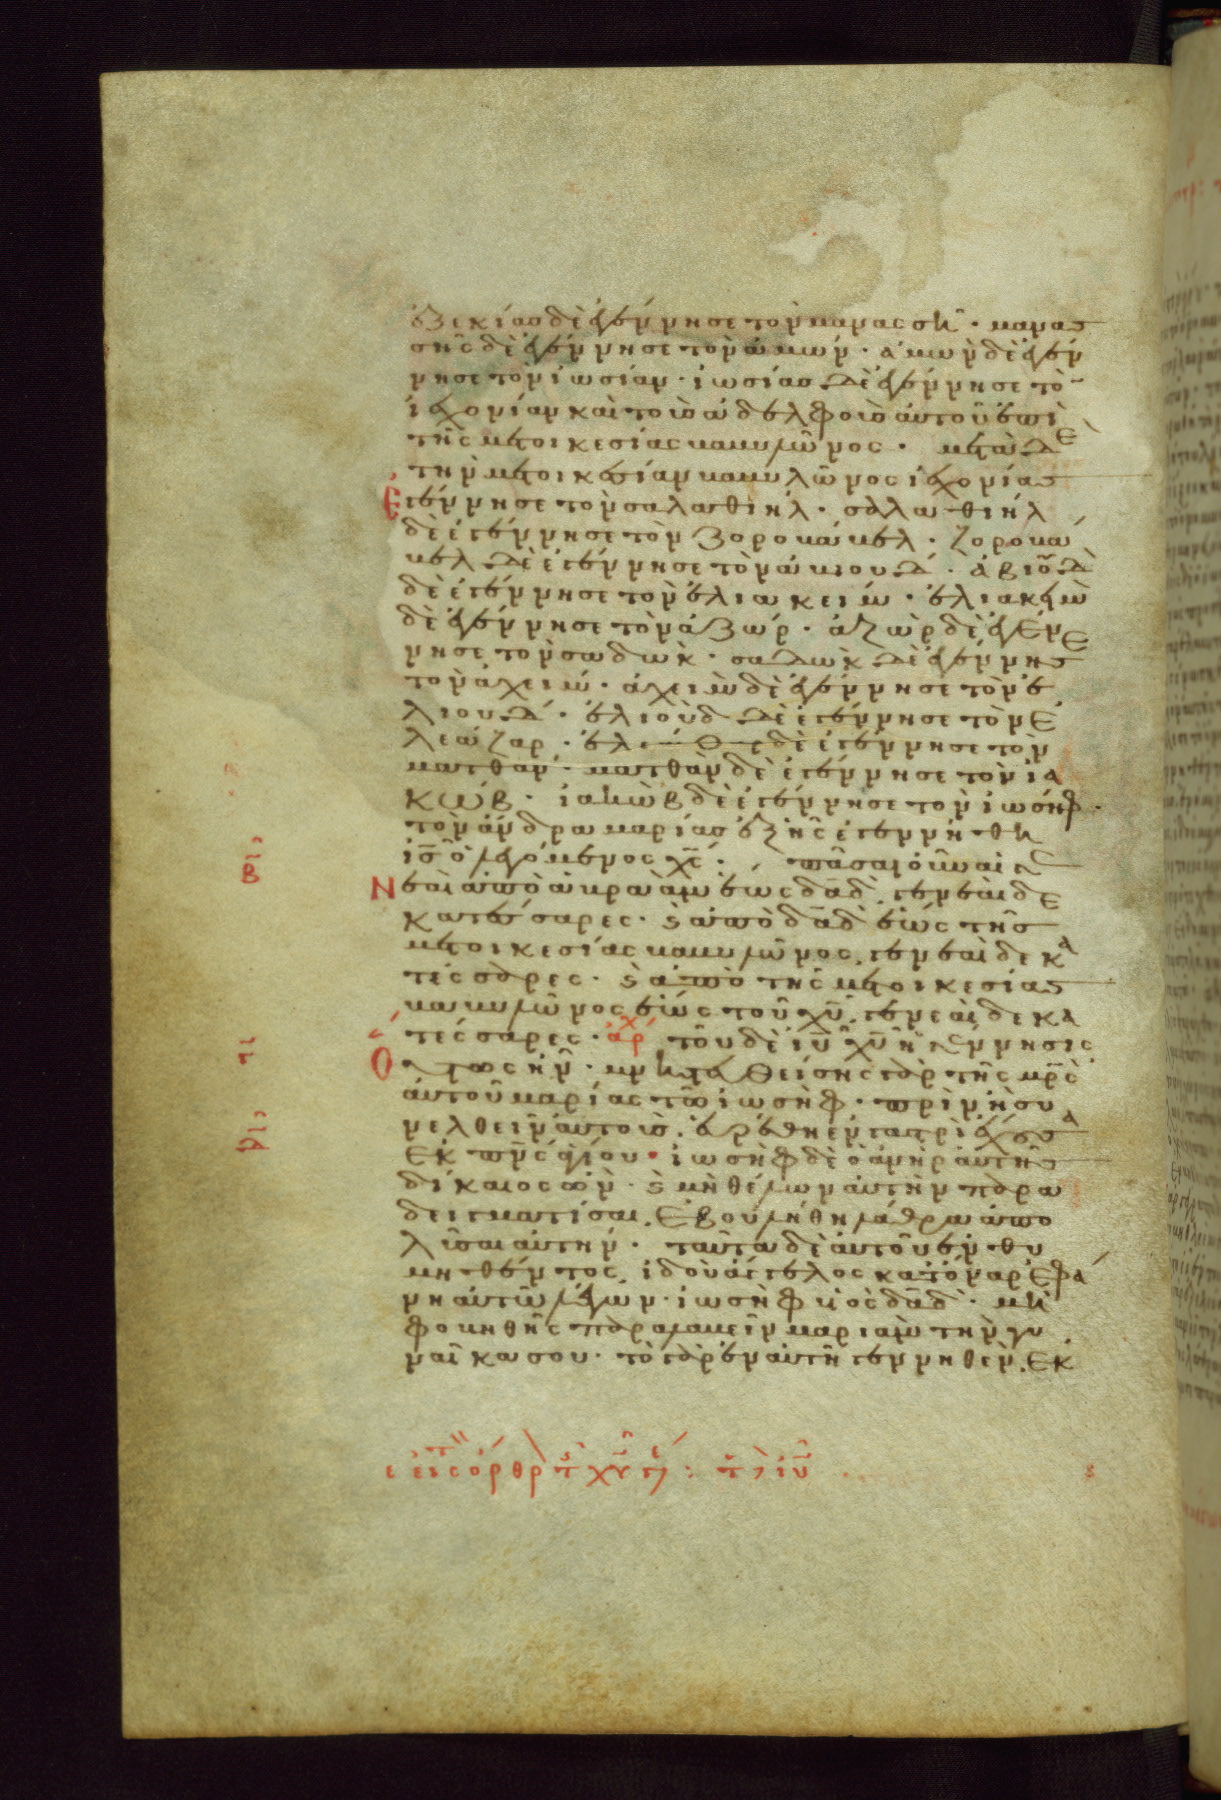 ἐζεκίας δὲ ἐγέννησε τὸν μανασσῆ · μανασ
σῆς δὲ ἐγέννησε τὸν ἀμών · ἀμὼν δὲ ἐγέν
νησε τὸν ἰωσίαν · ἰωσίας δὲ ἐγέννησε τὸ
ἰεχονίαν καὶ τοὺς ἀδελφοὺς αὐτοῦ ἐπὶ
τῆς μετοικεσίας βαβυλῶνος · μετὰ δὲ
τὴν μετοικεσίαν βαβυλῶνος ἰεχονίας
ἐγέννησε τὸν σαλαθιήλ · σαλαθιὴλ
δὲ ἐγέννησε τὸν ζοροβάβελ · ζοροβά
βελ δὲ ἐγέννησε τὸν ἀβιούδ · ἀβιοὺδ
δὲ ἐγέννησε τὸν ἐλιακείμ · ἐλιακεὶμ
δὲ ἐγέννησε τὸν ἀζώρ · ἀζὼρ δὲ ἐγέν
νησε τὸν σαδώκ · σαδὼκ δὲ ἐγέννησε
τὸν ἀχείμ · ἀχεὶμ δὲ ἐγέννησε τὸν ἐ
λιούδ · ἐλιοὺδ δὲ ἐγέννησε τὸν ἐ
λεάζαρ · δὲ ἐγέννησε τὸν
ματθάν · ματθὰν δὲ ἐγέννησε τὸν ἰα
κώβ · ἰακὼβ δὲ ἐγέννησε τὸν ἰωσήφ ·
τὸν ἄνδρα μαρίας ἐξ ἧς ἐγεννήθη
ις ὁ λεγόμενος χς · πᾶσαι οὖν αἱ γε
νεαὶ ἀπὸ ἀβραὰμ ἕως δαδ · γενεαὶ δε
κατέσσαρες · ϗ ἀπὸ δαδ ἕως τῆς
μετοικεσίας βαβυλῶνος · γενεαὶ δεκα
τέσσαρες · ϗ ἀπὸ τῆς μετοικεσίας
βαβυλῶνος ἕως τοῦ χυ · γενεαὶ δεκα
τέσσαρες · ἀρχ τοῦ δὲ ιυ χυ ἡ γέννησις
οὕτως ἦν · μνηστευθείσης γὰρ τῆς μρς
αὐτοῦ μαρίας τῶ ἰωσήφ · πρὶν ἢ συ
νελθεῖν αὐτοὺς · εὑρέθη ἐν γαστρὶ ἔχουσα
ἐκ πνς ἁγίου · ἰωσὴφ δὲ ὁ ἀνὴρ αὐτῆς
δίκαιος ὢν · ϗ μὴ θέλων αὐτὴν παρα
δειγματίσαι · ἐβουλήθη λάθρα ἀπο
λῦσαι αὐτήν · ταῦτα δὲ αὐτοῦ ἐνθυ
μηθέντος ἰδοὺ ἄγγελος κατ' ὄναρ ἐφά
νη αὐτῶ λέγων · ἰωσὴφ υἱὸς δαδ · μὴ
φοβηθῆς παραλαβεῖν μαριὰμ τὴν γυ
ναῖκα σου · τὸ γὰρ ἐν αὐτῆ γεννηθὲν · ἐκ